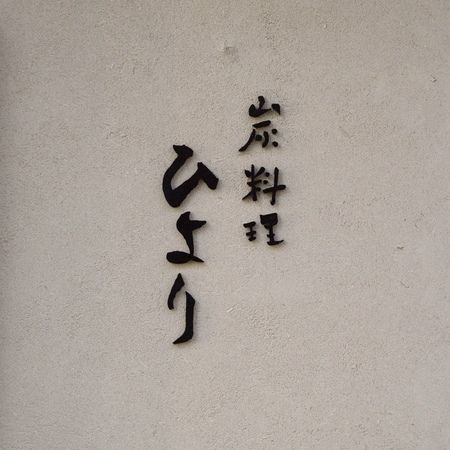 炭料理
ひより